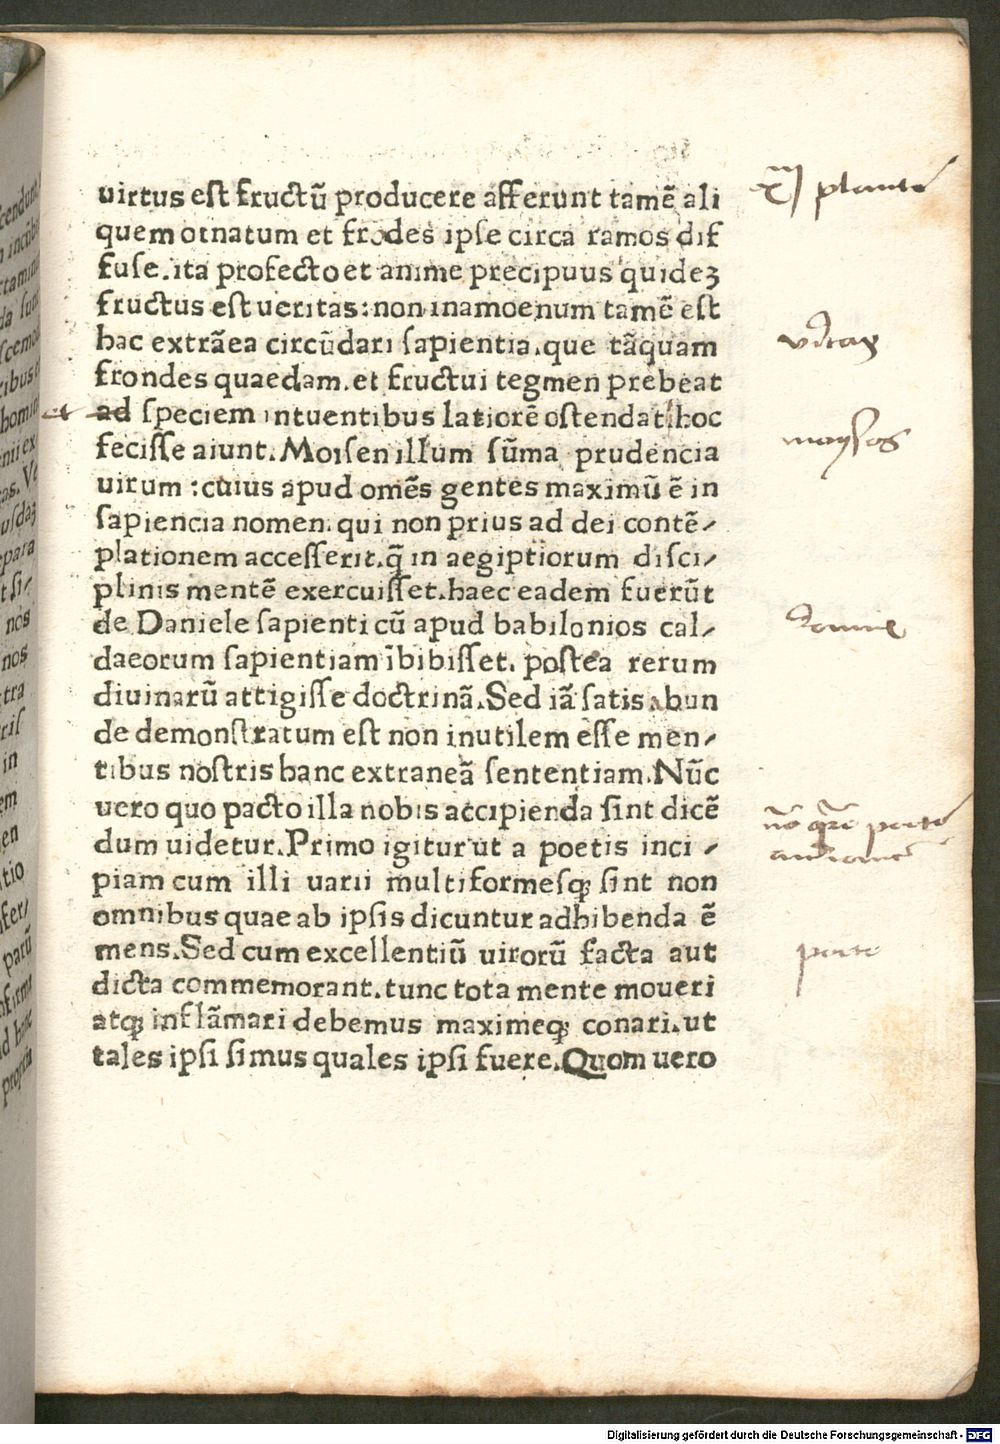 uirtus est fructū producere afferunt tamē ali
quem oꝛnatum et frōdes ipse circa ramos dif
fuse. ita profecto et anime precipuus quideꝫ
fructus est ueritas: non inamoenum tamē est
hac extrāea circūdari sapientia. que tāquam
frondes quaedam. et fructui tegmen prebeat
et ad speciem intuentibus latiorē ostendat. hoc
fecisse aiunt. Moisen illum sūma prudencia
uirum : cuius apud omēs gentes maximū ē in
sapiencia nomen. qui non prius ad dei contē-
plationem accesserit. q̄ in aegiptiorum disci-
plinis mentē exercuisset. haec eadem fuerūt
de Daniele sapienti cū apud babilonios cal-
daeorum sapientiam ībibisset. postea rerum
diuinarū attigisse doctrinā. Sed iā satis abun
de demonstratum est non inutilem esse men-
tibus nostris hanc extraneā sententiam. Nūc
uero quo pacto illa nobis accipienda sint dicē
dum uidetur. Primo igitur ut a poetis inci -
piam cum illi uarii multiformesqꝫ sint non
omnibus quae ab ipsis dicuntur adhibenda ē
mens. Sed cum excellentiū uirorū facta aut
dicta commemorant. tunc tota mente moueri
atqꝫ inflāmari debemus maximeqꝫ conari. ut
tales ipsi simus quales ipsi fuere. Quom uero
moyses
poete
Digitalisierung gefördert durch die Deutsche Forschungsgemeinschaft - DFG